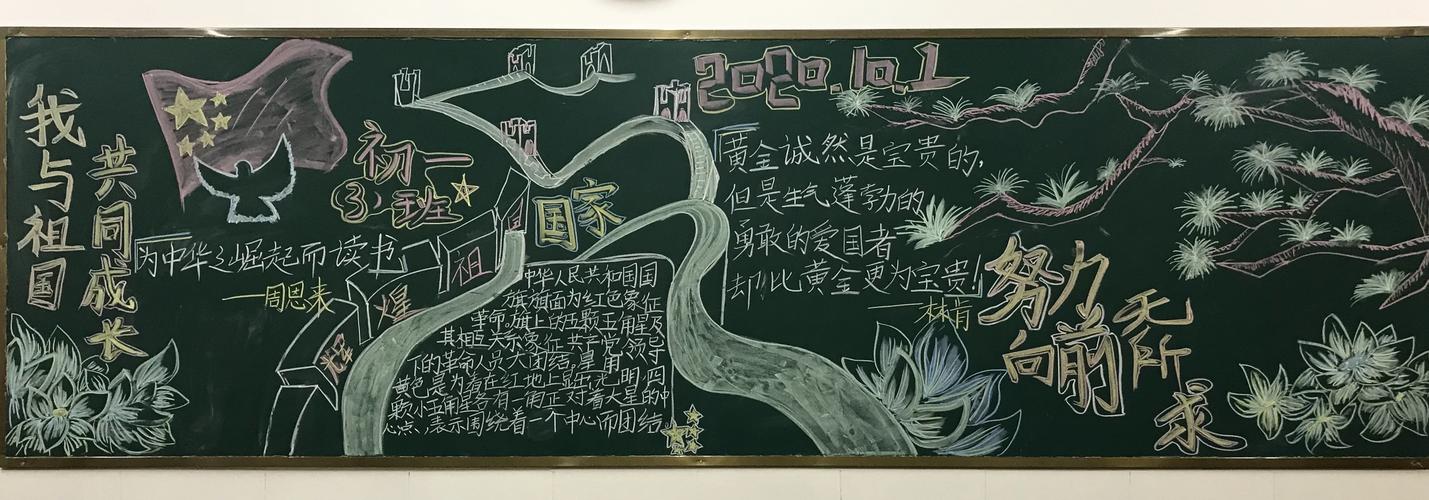 我与祖国
共同成长
初一
③班
为中华之崛起而读书
——周恩来
辉煌祖国
国家
中华人民共和国国
旗旗面为红色象征
革命。旗上的五颗五角星及
其相互关系象征共产党领导
下的革命人员大团结,星用
黄色是为着在红地上显出光明,四
颗小五角星各有一角正对着大星的中
心点,表示围绕着一个中心而团结。
2020.10.1
黄金诚然是宝贵的,
但是生气蓬勃的
勇敢的爱国者
却比黄金更为宝贵!
——林肯
努力
向前
无所
求